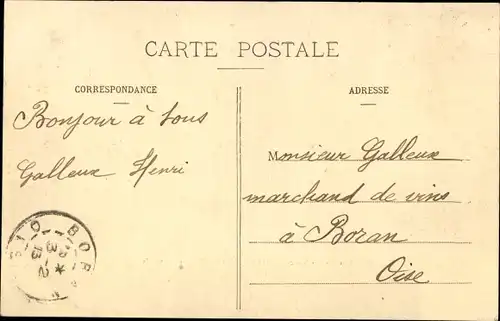 CARTE POSTALE
CORRESPONDANCE
Bonjour à tous
Galleux Henri
ADRESSE
Monsieur Galleux
marchand de vins
à Boran
Oise